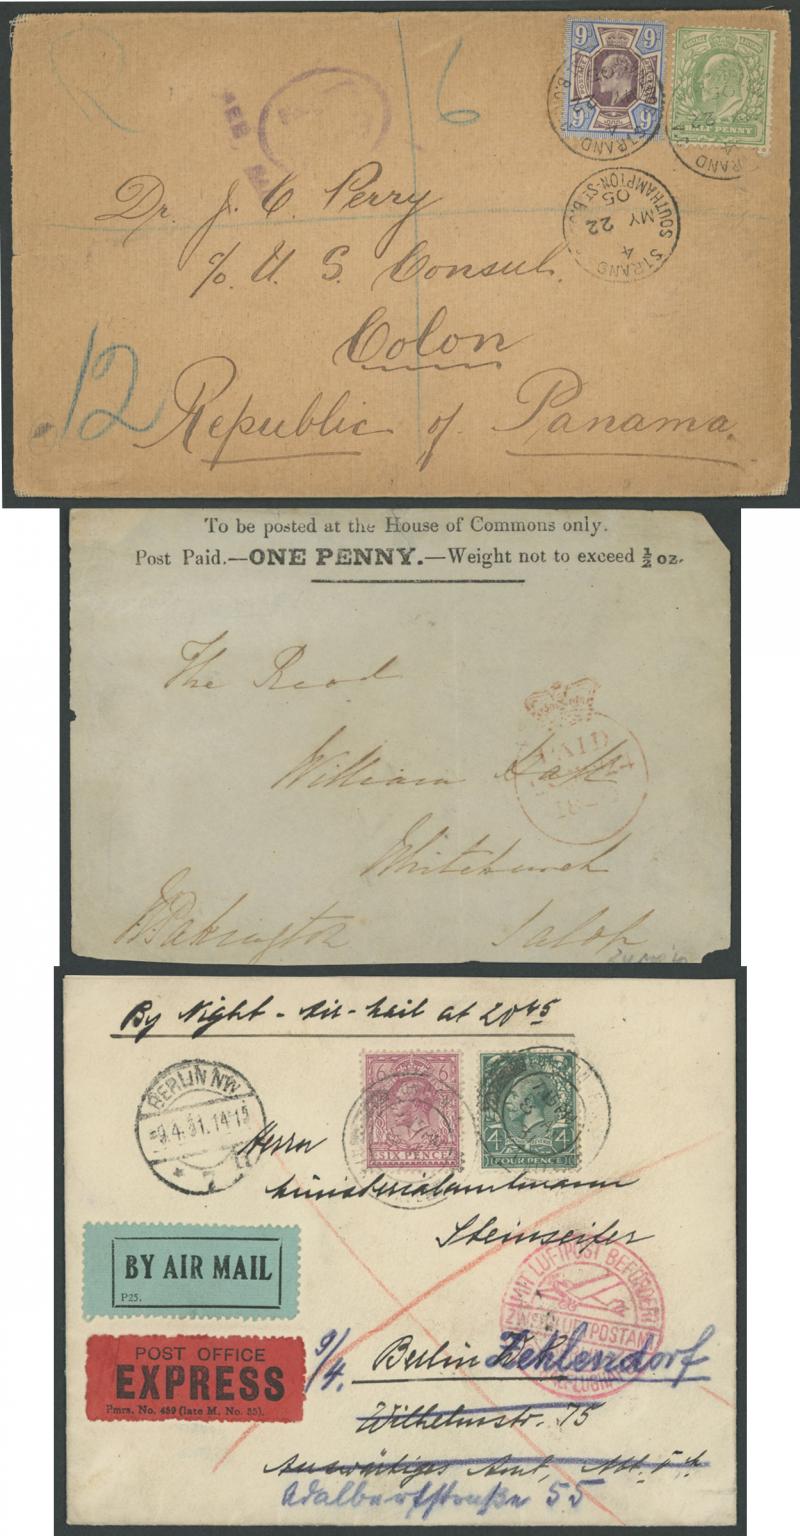 6
12
9d 9d
9d 9d
HALF PENNY
STRAND
4
MY 22
05
SOUTHAMPTON-ST B.O
Dr. J. C. Perry
c/o U. S. Consul.
Colon
Republic of Panama.
To be posted at the House of Commons only.
Post Paid.—ONE PENNY.—Weight not to exceed ½ oz.
The Revd
William
PAID
18
Whitchurch
Pakington
Salop
By Night-Air-Mail at 20 45
BERLIN NW
9.4.31.14-15
* 7
6 6
SIX PENCE
4 4
FOUR PENCE
Herrn
Ministerialamtmann
Steinseifer
BY AIR MAIL
P25.
POST OFFICE
EXPRESS
Pmrs. No. 459 (late M. No. 35).
MIT LUFTPOST BEFÖRDERT
9/4.
Berlin Zehlendorf
Wilhelmstr. 75
Auswärtiges Amt, Abt.
Adalbertstraße 55